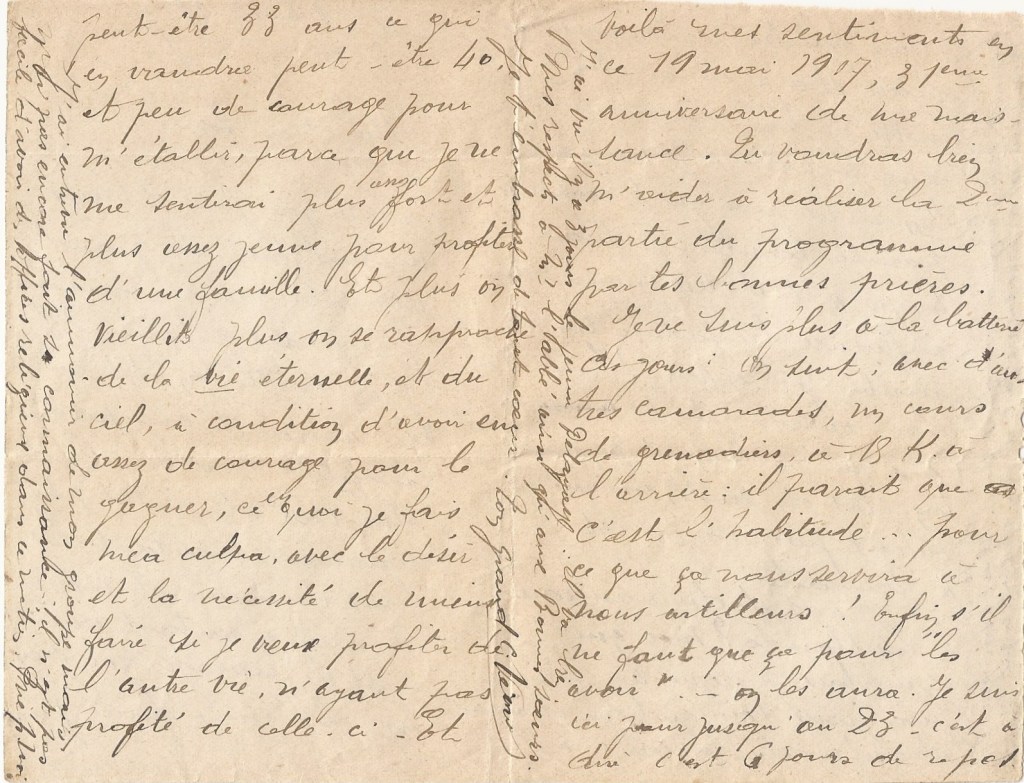 peut-être 33 ans ce qui
en vaudra peut-être 40.
et peu de courage pour
m'établir, parce que je ne
me sentirai plus assez fort et
plus assez jeune pour profiter
d'une famille. Et plus on
vieillit plus on se rapproche
de la vie éternelle, et du
ciel, à condition d'avoir eu
assez de courage pour le
gagner, ce quoi je fais
mea culpa, avec le désir
et la nécessité de mieux
faire si je veux profiter de
l'autre vie, n'ayant pas
profité de celle-ci - Et
voilà mes sentiments en
ce 19 mai 1917, 31eme
anniversaire de ma nais-
sance. Tu voudras bien
m'aider à réaliser la 2eme
partie du programme
par tes bonnes prières.
Je ne suis plus à la batterie
ces jours : on suit, avec d'au-
tres camarades, un cours
de grenadiers, à 13 K. à
l'arrière : il parait que
c'est l'habitude ... pour
ce que ça nous servira à
nous artilleurs ! Enfin s'il
ne faut que ça pour "les
avoir" - on les aura. Je suis
ici pour jusqu'au 23 - c'est à
dire c'est 6 jours de repos.
J'ai vu il y a 3 jours le jeune
Mes respects à Mr l'abbé ainsi qu'aux Bonnes soeurs.
Je t'embrasse de tout coeur. Ton grand
J'ai entrevu l'aumônier de mon groupe mais
n'ai pas encore fait sa connaissance : il n'est pas
facile d'avoir des offices religieux dans ce métier.